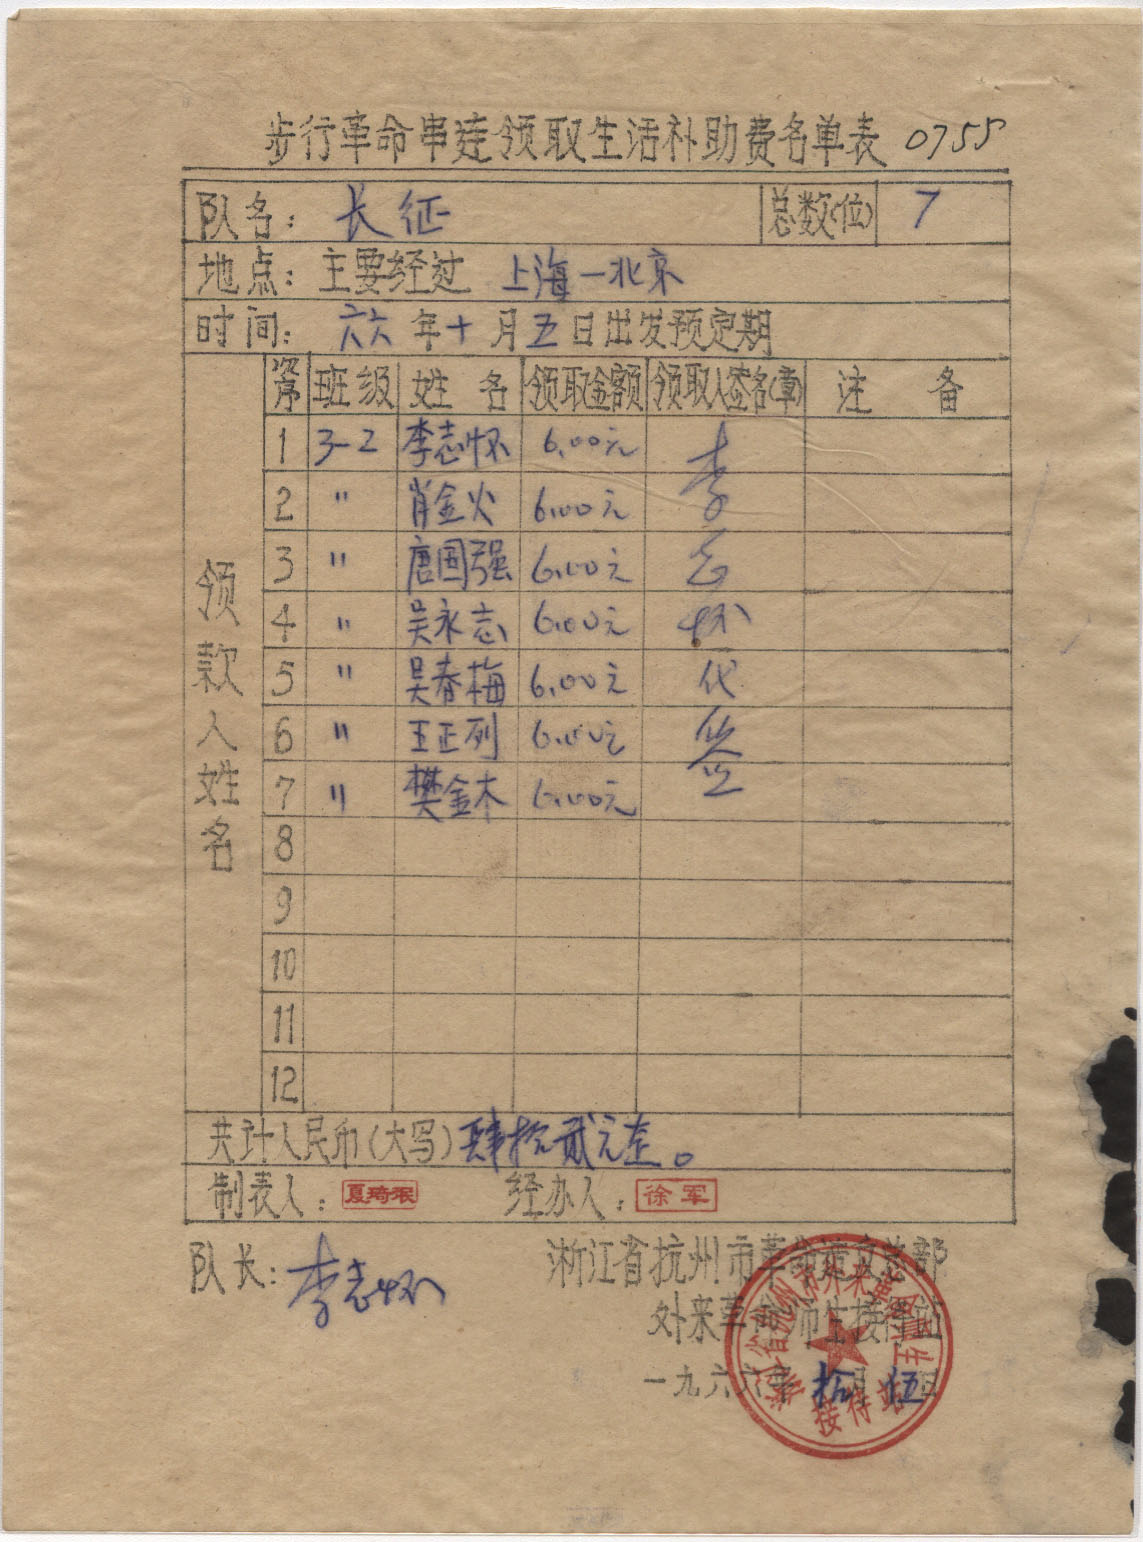 步行革命串连领取生活补助费名单表 0755
队名: 长征 总数(位) 7
地点: 主要经过 上海—北京
时间: 六六年十月五日出发预定期
领款人姓名
次序 班级 姓名 领取金额 领取人签名(章) 注备
1 3-2 李志怀 6.00元 李
2 〃 肖金火 6.00元
3 〃 唐国强 6.00元 志
4 〃 吴永志 6.00元 怀
5 〃 吴春梅 6.00元 代
6 〃 王正列 6.00元 签
7 〃 樊金木 6.00元
8
9
10
11
12
共计人民币(大写) 肆拾贰元左。
制表人: 夏琦珉 经办人: 徐军
队长: 李志怀
浙江省杭州市革命造反总部
外来革命师生接待站
一九六六年拾月伍日
浙江省杭州市外来革命师生
接待站